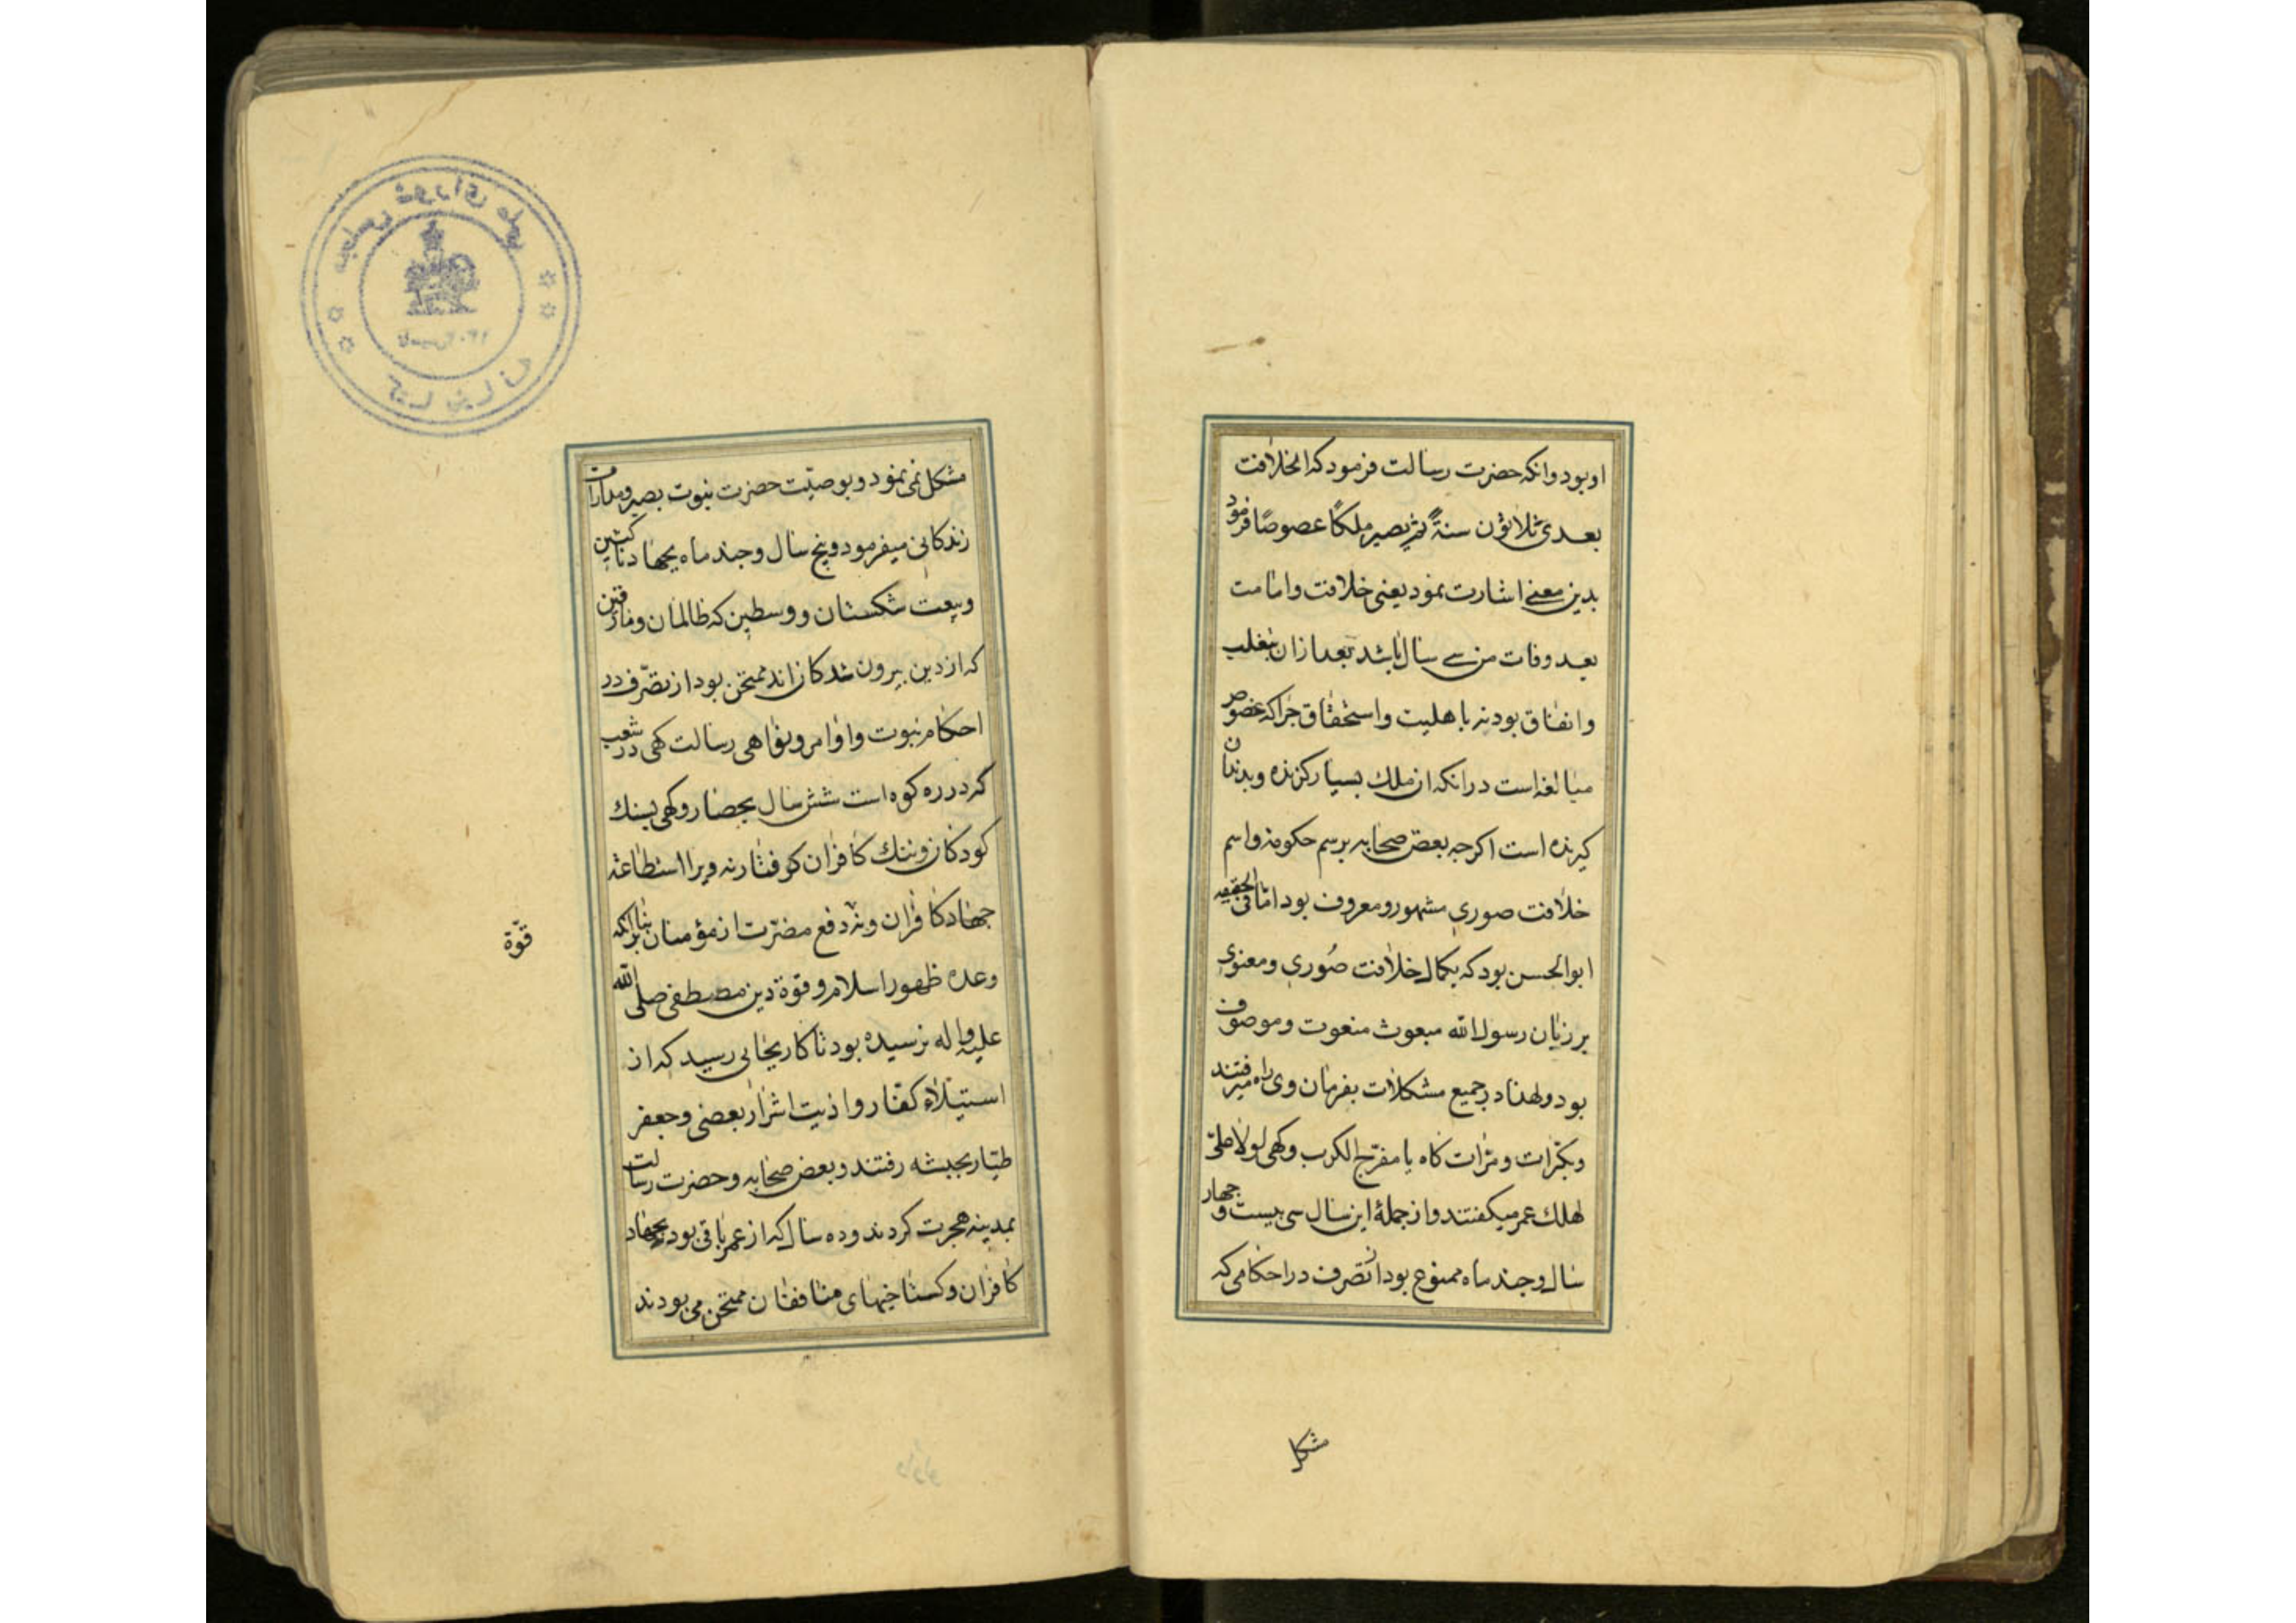 او بود وانکه حضرت رسالت فرمود که الخلافت
بعدی ثلاثون سنة ثم یصیر ملکا عضوضا فرمود
بدین معنی اشارت نمود یعنی خلافت وامامت
بعد وفات من سی سال باشد بعد ازان بتغلب
واتفاق بود نه باهلیت واستحقاق چراکه عضوض
مبالغه است درانکه ان ملک بسیار کزنده وبدندان
کیرنده است اکرچه بعض صحابه برسم حکومة واسم
خلافت صوری مشهور ومعروف بود اما فی الحقیقه
ابوالحسن بود که بکمال خلافت صوری ومعنوی
بر زبان رسول الله مبعوث منعوت وموصوف
بود ولهذا در جمیع مشکلات بفرمان وی راه میرفتند
وبکرات ومرات کاه یا مفرج الکرب وکهی لولا علی
لهلک عمر میکفتند واز جملۀ این سال سی بیست و چهار
سال وچند ماه ممنوع بود از تصرف در احکامی که
مشکل
مشکل نمی نمود وبوصیت حضرت نبوت بصبر ومدارات
زندکانی میفرمود وپنج سال وچند ماه بجهاد ناکثین
وبیعت شکستان و وسطین که ظالمان ومارقین
که از دین بیرون شدکان اند ممتحن بود از تصرف در
احکام نبوت واوامر ونواهی رسالت کهی در شعب
که دره کوه است شش سال بحصار وکهی بسنک
کودکان وننک کافران کرفتار نه ویرا استطاعة
جهاد کافران ونه دفع مضرت از مؤمنان بنابرانکه
قوة
وعده ظهور اسلام وقوة دین مصطفی صلی الله
علیه واله نرسیده بود تا کار بجائی رسید که از
استیلاء کفار واذیت اشرار بعضی وجعفر
طیار بحبشه رفتند وبعض صحابه وحضرت رسالت
بمدینه هجرت کردند وده سال که از عمر باقی بود بجهاد
کافران وکستاخیهای منافقان ممتحن می بودند